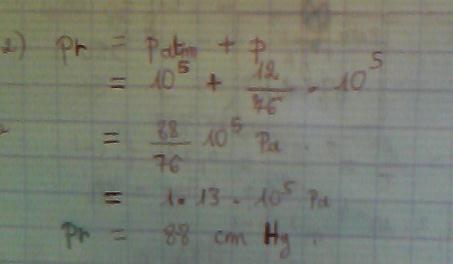 2) pr = patm + p
= 10⁵ + 12/76 . 10⁵
= 88/76 10⁵ Pa
= 1.13 . 10⁵ Pa
pr = 88 cm Hg.